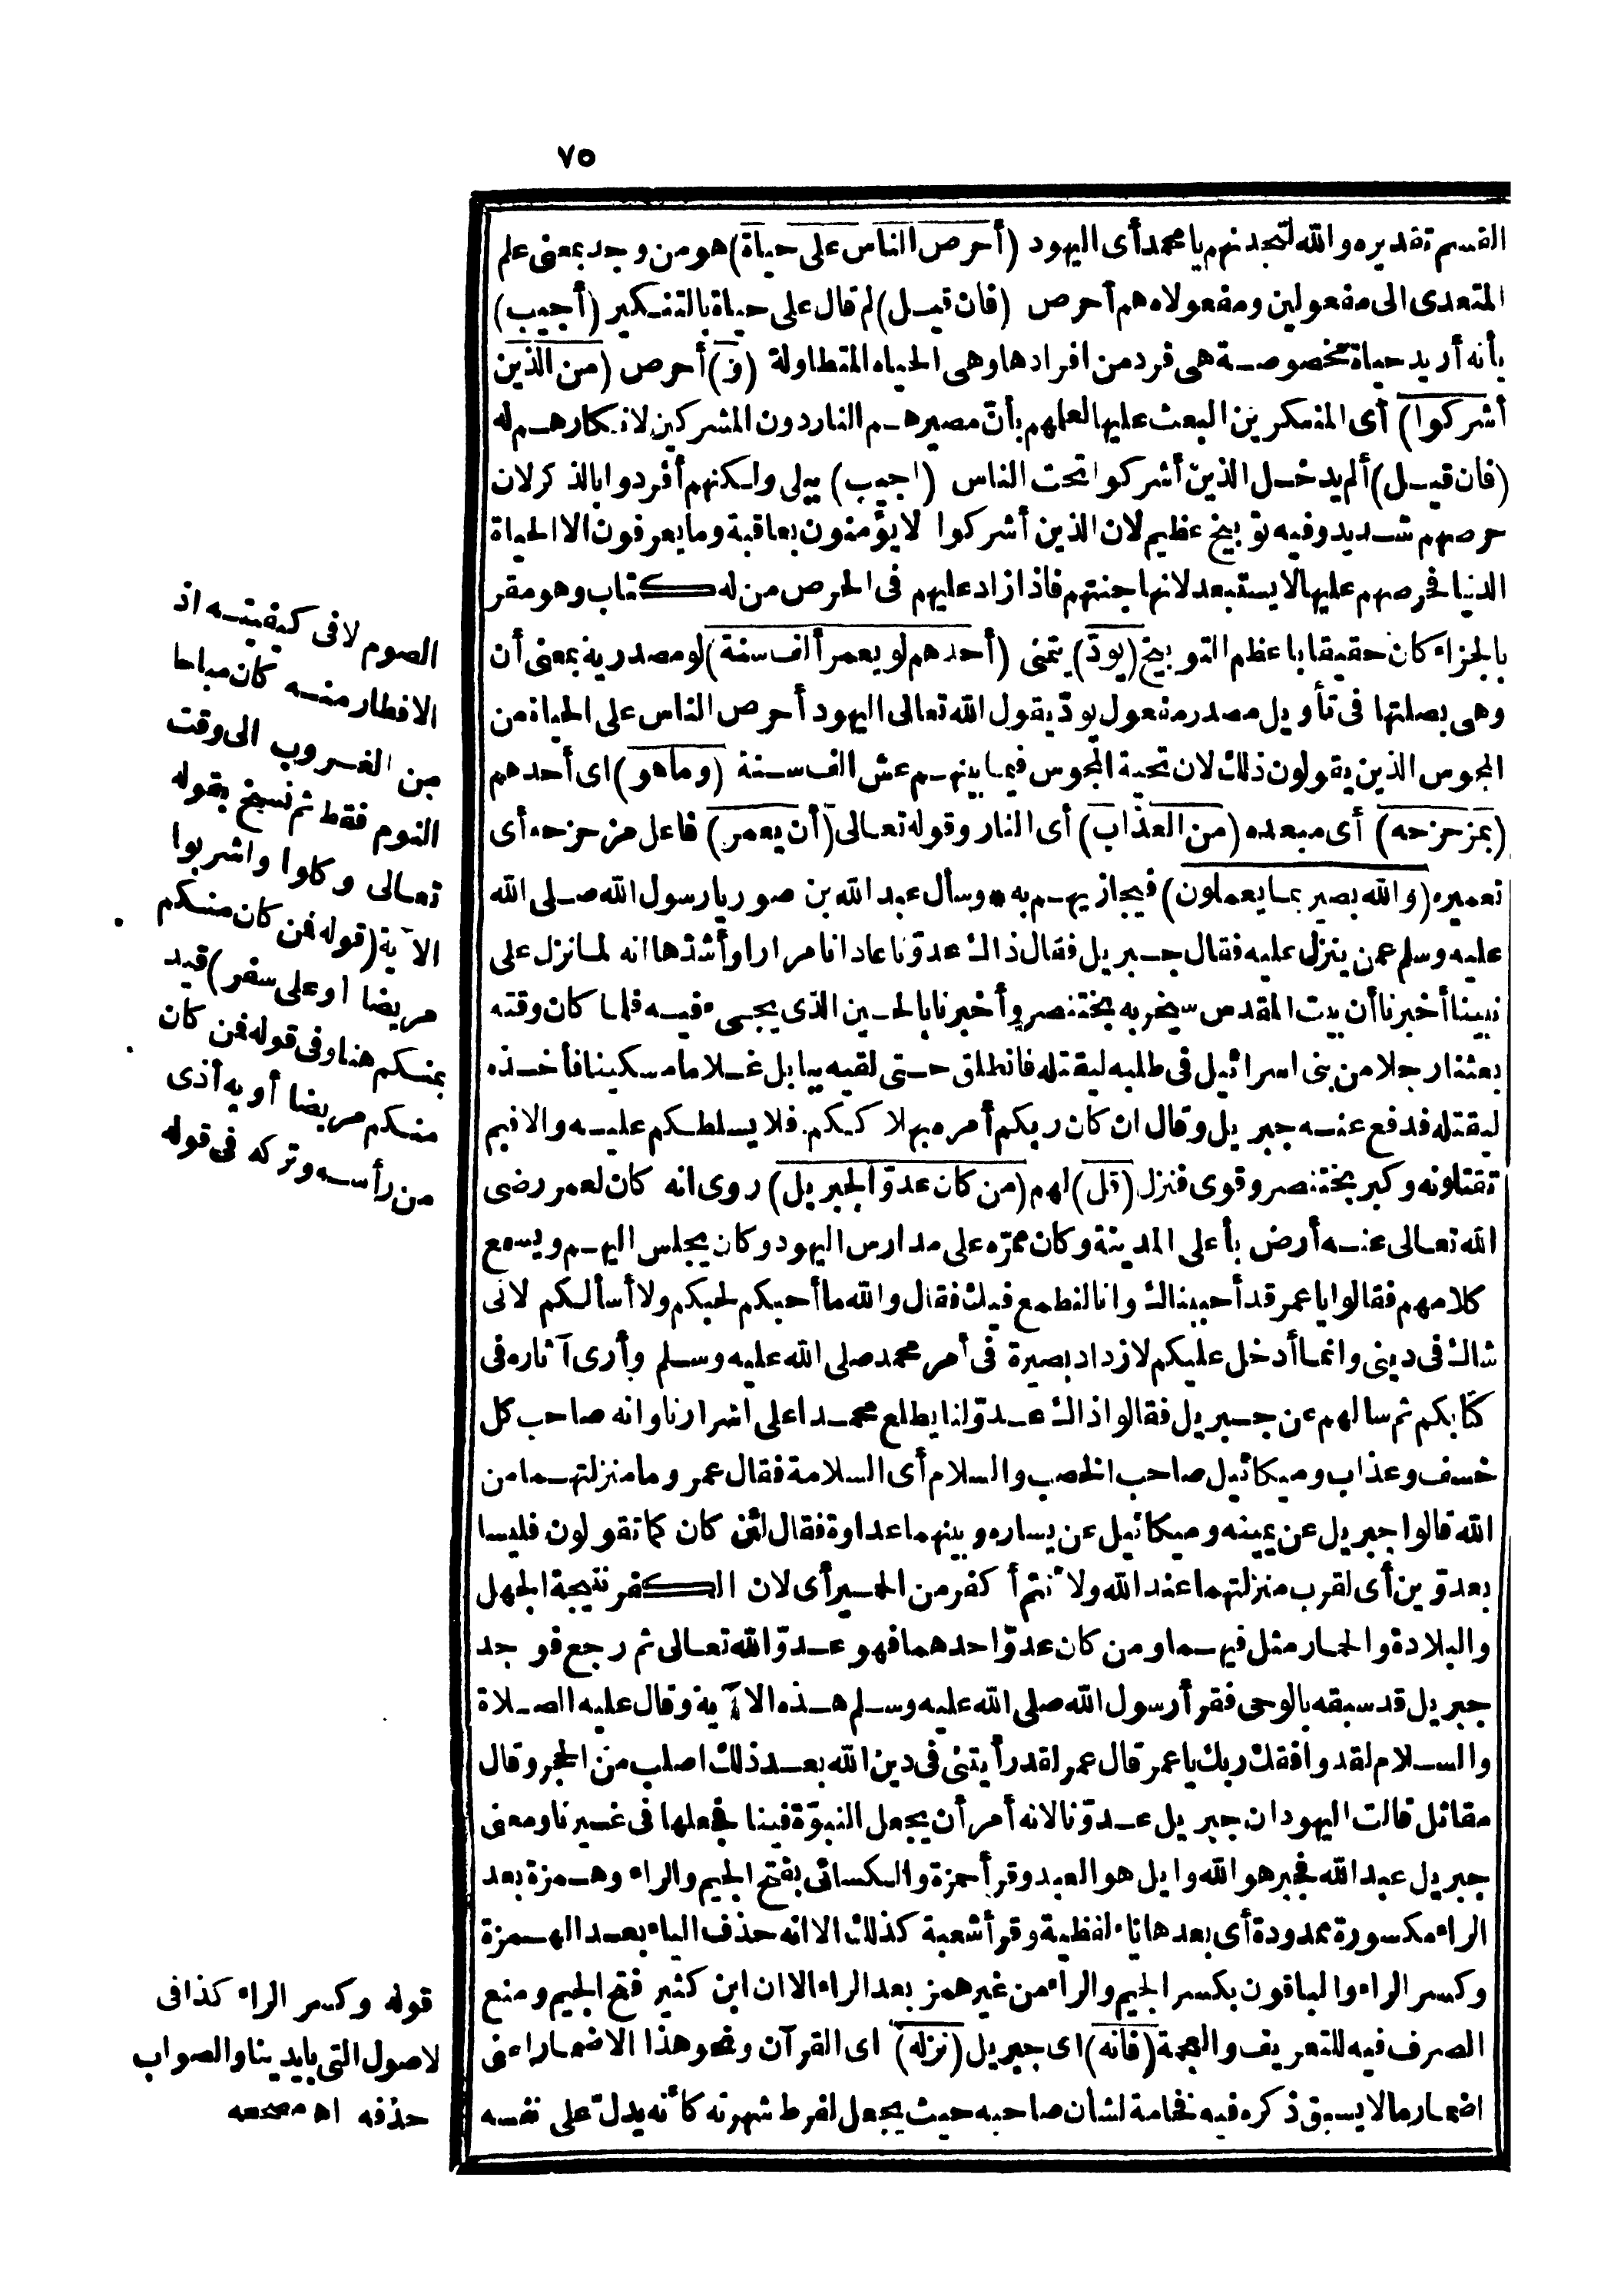 ٧٥
القسم تقديره والله لتجدنهم يا محمد أى اليهود (أحرص الناس على حياة) هو من وجد بمعنى علم
المتعدى الى مفعولين ومفعولاه هم أحرص (فان قيل) لم قال على حياة بالتنكير (أجيب)
بأنه أريد حياة مخصوصة هى فرد من افرادها وهى الحياة المتطاولة (و) أحرص (من الذين
أشركوا) أى المنكرين البعث عليها لعلهم بأنّ مصيرهم النار دون المشركين لانكارهم له
(فان قيل) ألم يدخل الذين أشركوا تحت الناس (اجيب) ببلى ولكنهم أفردوا بالذكر لان
حرصهم شديد وفيه توبيخ عظيم لان الذين أشركوا لا يؤمنون بعاقبة وما يعرفون الا الحياة
الدنيا فحرصهم عليها لا يستبعد لانها جنتهم فاذا زاد عليهم فى الحرص من له كتاب وهو مقر
بالجزاء كان حقيقا باعظم التوبيخ (يودّ) يتمنى (أحدهم لو يعمر ألف سنة) لو مصدرية بمعنى أن
وهى بصلتها فى تأويل مصدر مفعول يودّ يقول الله تعالى اليهود أحرص الناس على الحياة من
المجوس الذين يقولون ذلك لان تحية المجوس فيما بينهم عش الف سنة (وما هو) اى أحدهم
(بمزحزحه) أى مبعده (من العذاب) أى النار وقوله تعالى (أن يعمر) فاعل مزحزحه أى
تعميره (والله بصير بما يعملون) فيجازيهم به * وسأل عبد الله بن صوريا رسول الله صلى الله
عليه وسلم عمن ينزل عليه فقال جبريل فقال ذاك عدوّنا عادانا مرارا وأشدّها انه لما نزل على
نبينا أخبرنا أن بيت المقدس سيخربه بختنصر وأخبرنا بالحين الذى يجىء فيه فلما كان وقته
بعثنا رجلا من بنى اسرائيل فى طلبه ليقتله فانطلق حتى لقيه ببابل غلاما مسكينا فأخذه
ليقتله فدفع عنه جبريل وقال ان كان ربكم أمره بهلاككم فلا يسلطكم عليه والا فبم
تقتلونه وكبر بختنصر وقوى فنزل (قل) لهم (من كان عدوّا لجبريل) روى انه كان لعمر رضى
الله تعالى عنه أرض بأعلى المدينة وكان ممرّه على مدارس اليهود وكان يجلس اليهم ويسمع
كلامهم فقالوا يا عمر قد أحببناك وانا لنطمع فيك فقال والله ما أحبكم لحبكم ولا أسألكم لانى
شاك فى دينى وانما أدخل عليكم لازداد بصيرة فى أمر محمد صلى الله عليه وسلم وأرى آثاره فى
كتابكم ثم سالهم عن جبريل فقالوا ذاك عدوّلنا يطلع محمدا على اشرارنا وانه صاحب كل
خسف وعذاب وميكائيل صاحب الخصب والسلام أى السلامة فقال عمر وما منزلتهما من
الله قالوا جبريل عن يمينه وميكائيل عن يساره وبينهما عداوة فقال لئن كان كما تقولون فليسا
بعدوّين أى لقرب منزلتهما عند الله ولأنتم أكفر من الحمير أى لان الكفر نتيجة الجهل
والبلادة والحمار مثل فيهما ومن كان عدوّا حدهما فهو عدوّ الله تعالى ثم رجع فوجد
جبريل قد سبقه بالوحى فقرأ رسول الله صلى الله عليه وسلم هذه الآية وقال عليه الصلاة
والسلام لقد وافقك ربك يا عمر قال عمر لقد رأيتنى فى دين الله بعد ذلك اصلب من الحجر وقال
مقاتل قالت اليهود ان جبريل عدوّنا لانه أمر أن يجعل النبوّة فينا فجعلها فى غيرنا ومعنى
جبريل عبد الله فجبر هو الله وايل هو العبد وقرأ حمزة والكسائى بفتح الجيم والراء وهمزة بعد
الراء مكسورة ممدودة أى بعدها ياء لفظية وقرأ شعبة كذلك الا انه حذف الياء بعد الهمزة
وكسر الراء والباقون بكسر الجيم والراء من غير همز بعد الراء الا ان ابن كثير فتح الجيم ومنع
الصرف فيه للتعريف والعجمة (فانه) اى جبريل (نزله) اى القرآن ونحو هذا الاضمار اعنى
اضمار ما لا يسبق ذكره فيه فخامة لشأن صاحبه حيث يجعل لفرط شهرته كأنه يدلّ على نفسه
الصوم لا فى كيفيته اذ
الافطار منه كان مباحا
من الغروب الى وقت
النوم فقط ثم نسخ بقوله
تعالى وكلوا واشربوا
الآية (قوله فمن كان منكم
مريضا او على سفر) قيد
بمنكم هنا وفى قوله فمن كان
منكم مريضا أو به أذى
من رأسه وتركه فى قوله
قوله وكسر الراء كذا فى
لاصول التى بايدينا والصواب
حذفه اه مصححه